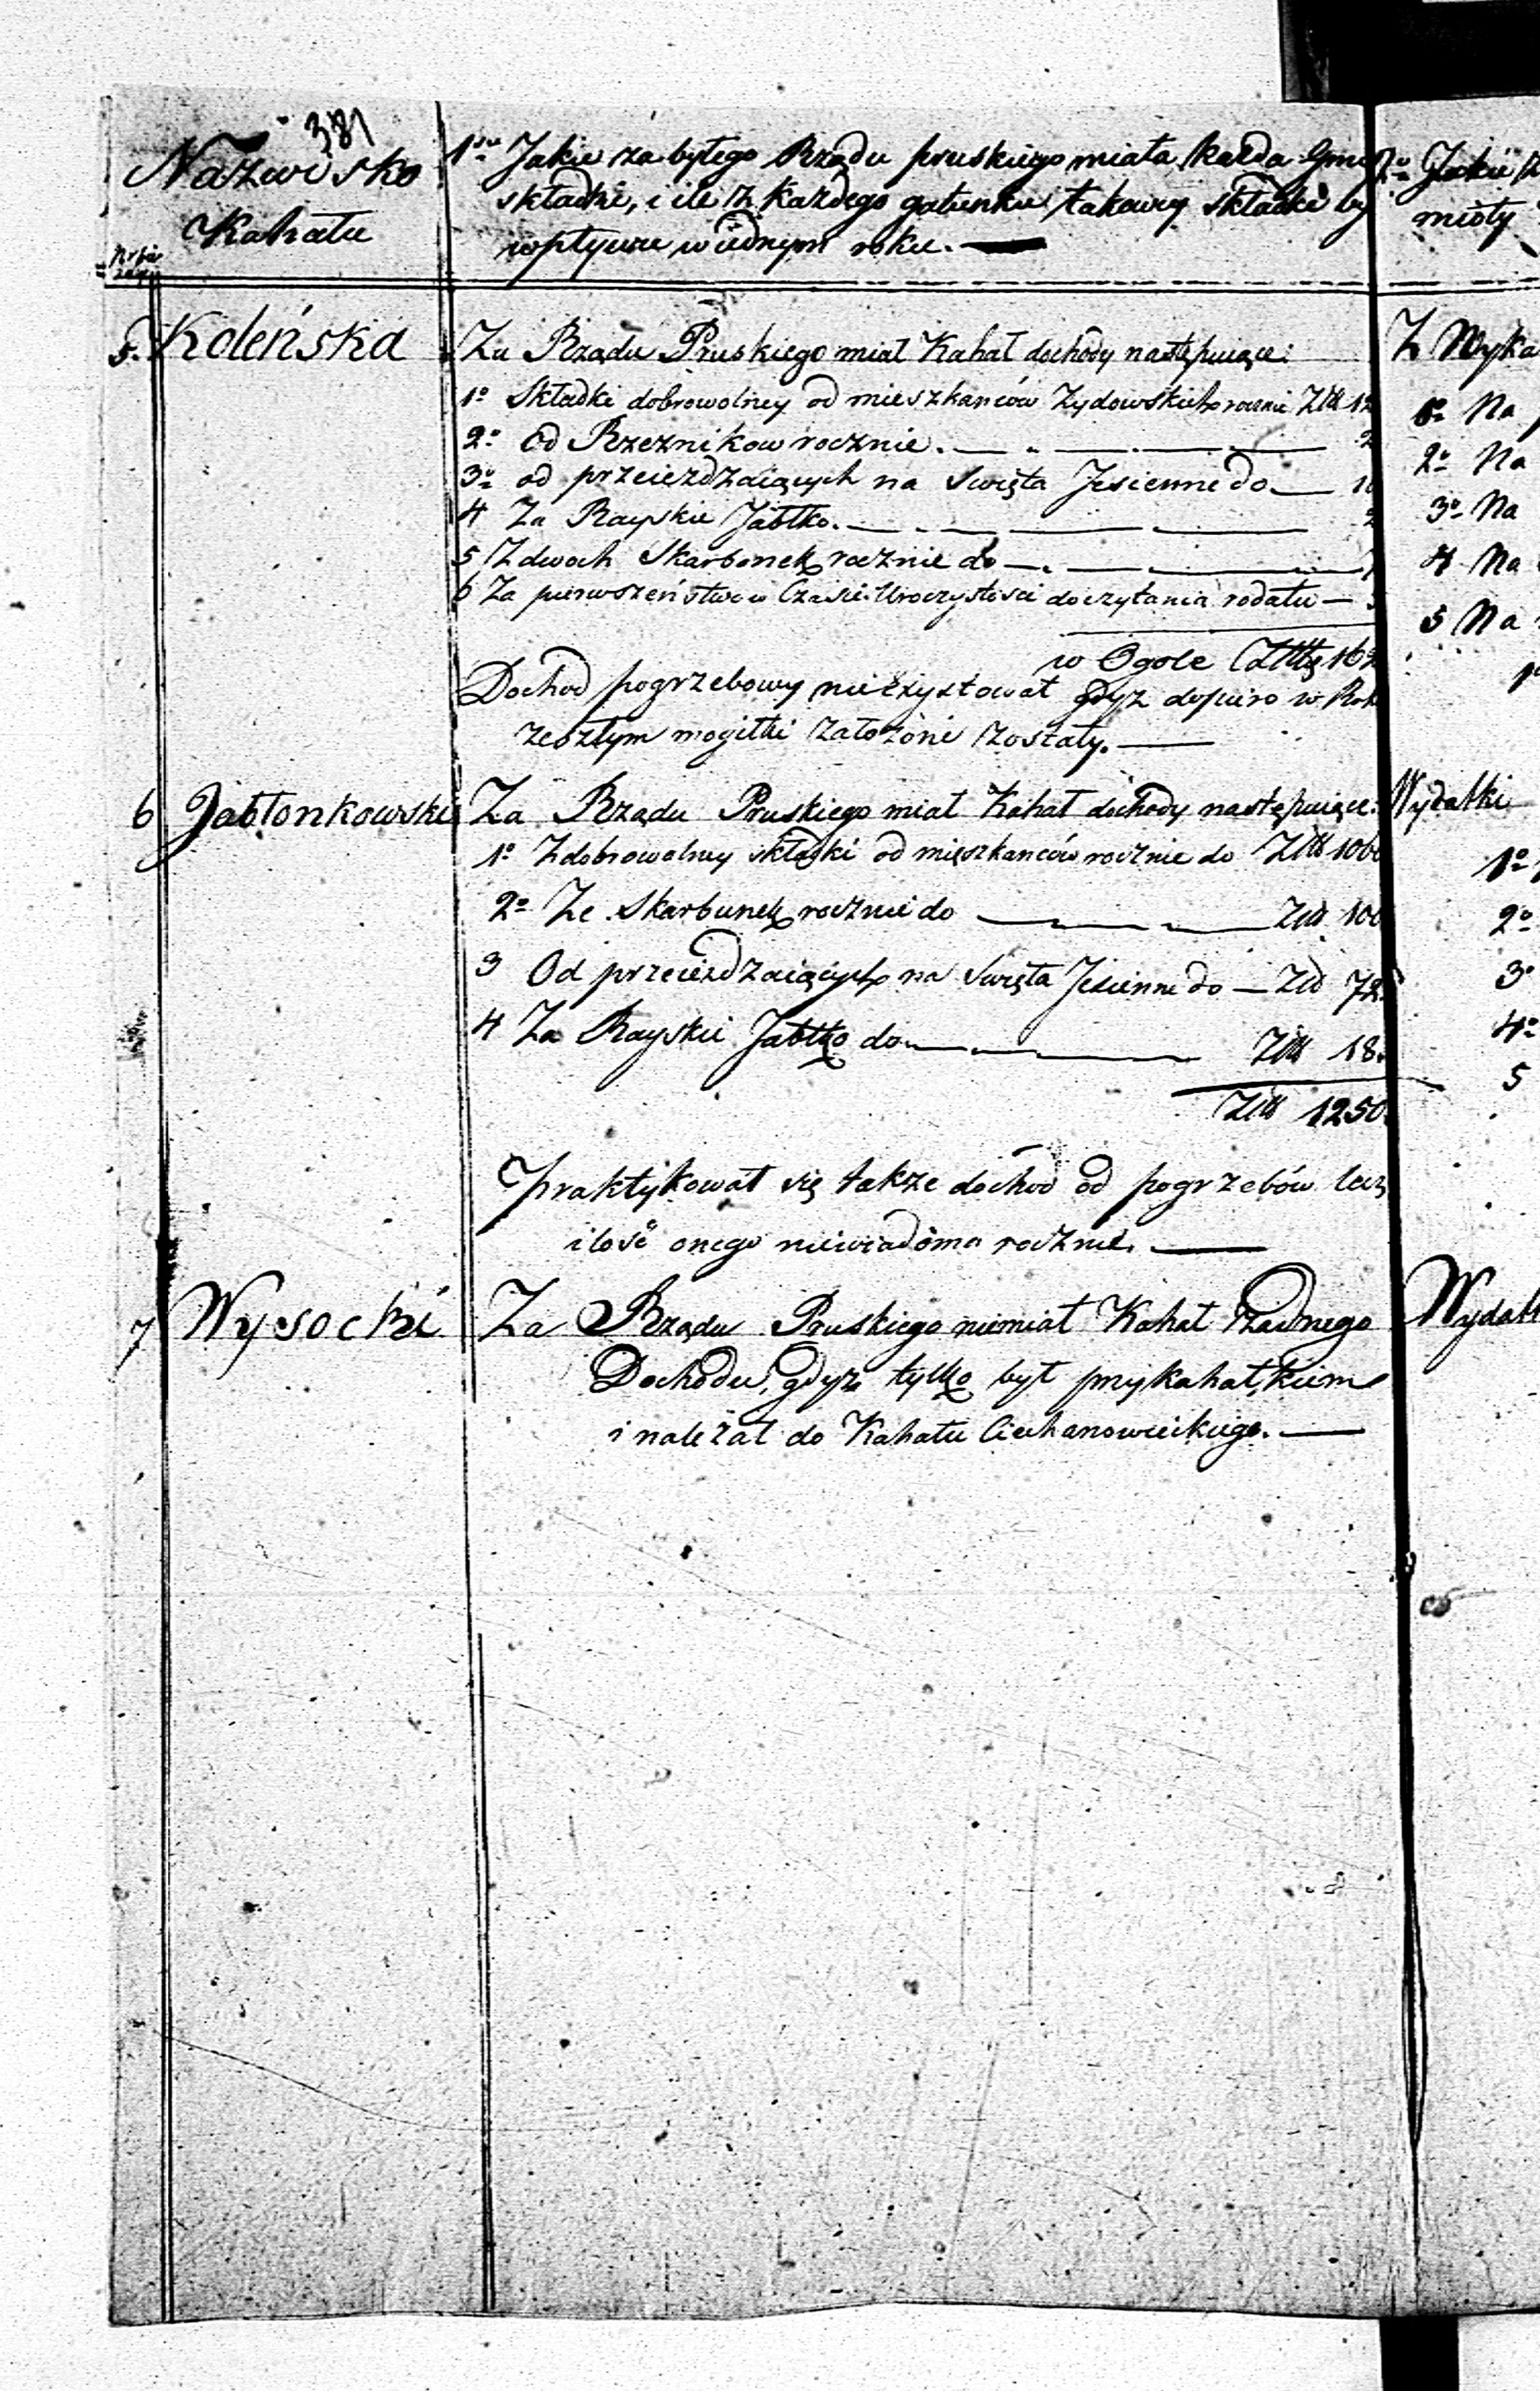 381
Nazwisko
Kahału
1mo Jakie za byłego Rządu pruskiego miała każda Gmi
składki, i ile z każdego gatunku takowey składki by
wpływu w iednym roku.
2do Jakie
mioty
5. Koleńska
Za Rządu Pruskiego miał Kahał dochody następuiące:
1o Składki dobrowolney od mieszkanców Zydowskich rocznie Złł 12
2o Od Rzeznikow rocznie. 2
3o od przeieżdzaiących na Swięta Jesienne do 1
4 Za Rayskie Jabłko. 2
5 Z dwoch Skarbonek rocznie do
6 Za pierwszeństwo w Czasie Uroczystosci do czytania rodału
w Ogole Złł 162
Dochod pogrzebowy nieexystował gdyz dopiero w Rok
zeszłym mogiłki założone zostały.
Z Wyka
1o Na
2o Na
3o Na
4 Na
5 Na
6 Jabłonkowski
Za Rządu Pruskiego miał Kahał dochody następuiące:
1o Z dobrowolney składki od mieszkanców rocznie do Złł 1060
2o Ze Skarbunek rocznie do Złł 100
3 Od przeieżdzaiących na Swięta Jesienne do Złł 72
4 Za Rayskie Jabłko do Złł 18.
Złł 1250.
Praktykował się także dochod od pogrzebów lecz
ilość onego niewiadoma rocznie.
Wydatki
1o
2o
3o
4o
5
7 Wysocki
Za Rządu Pruskiego niemiał Kahał żadnego
Dochodu, gdyz tylko był przykahałkiem
i należał do Kahału Ciechanowieckiego.
Wydatk